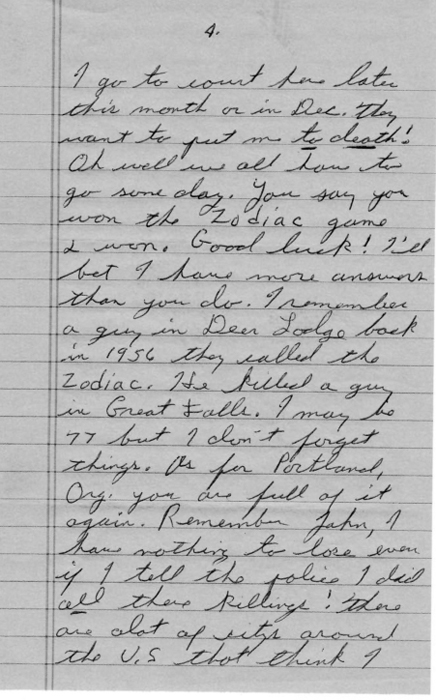 4.
I go to court here later
this month or in Dec. they
want to put me to death!
Oh well we all have to
go some day. You say you
won the Zodiac game
I won. Good luck! I'll
bet I have more answers
than you do. I remember
a guy in Deer Lodge back
in 1956 they called the
Zodiac. He killed a guy
in Great Falls. I may be
77 but I don't forget
things. As for Portland,
Org. you are full of it
again. Remember John, I
have nothing to lose even
if I tell the police I did
all these killings! there
are alot of citys around
the U.S that think I